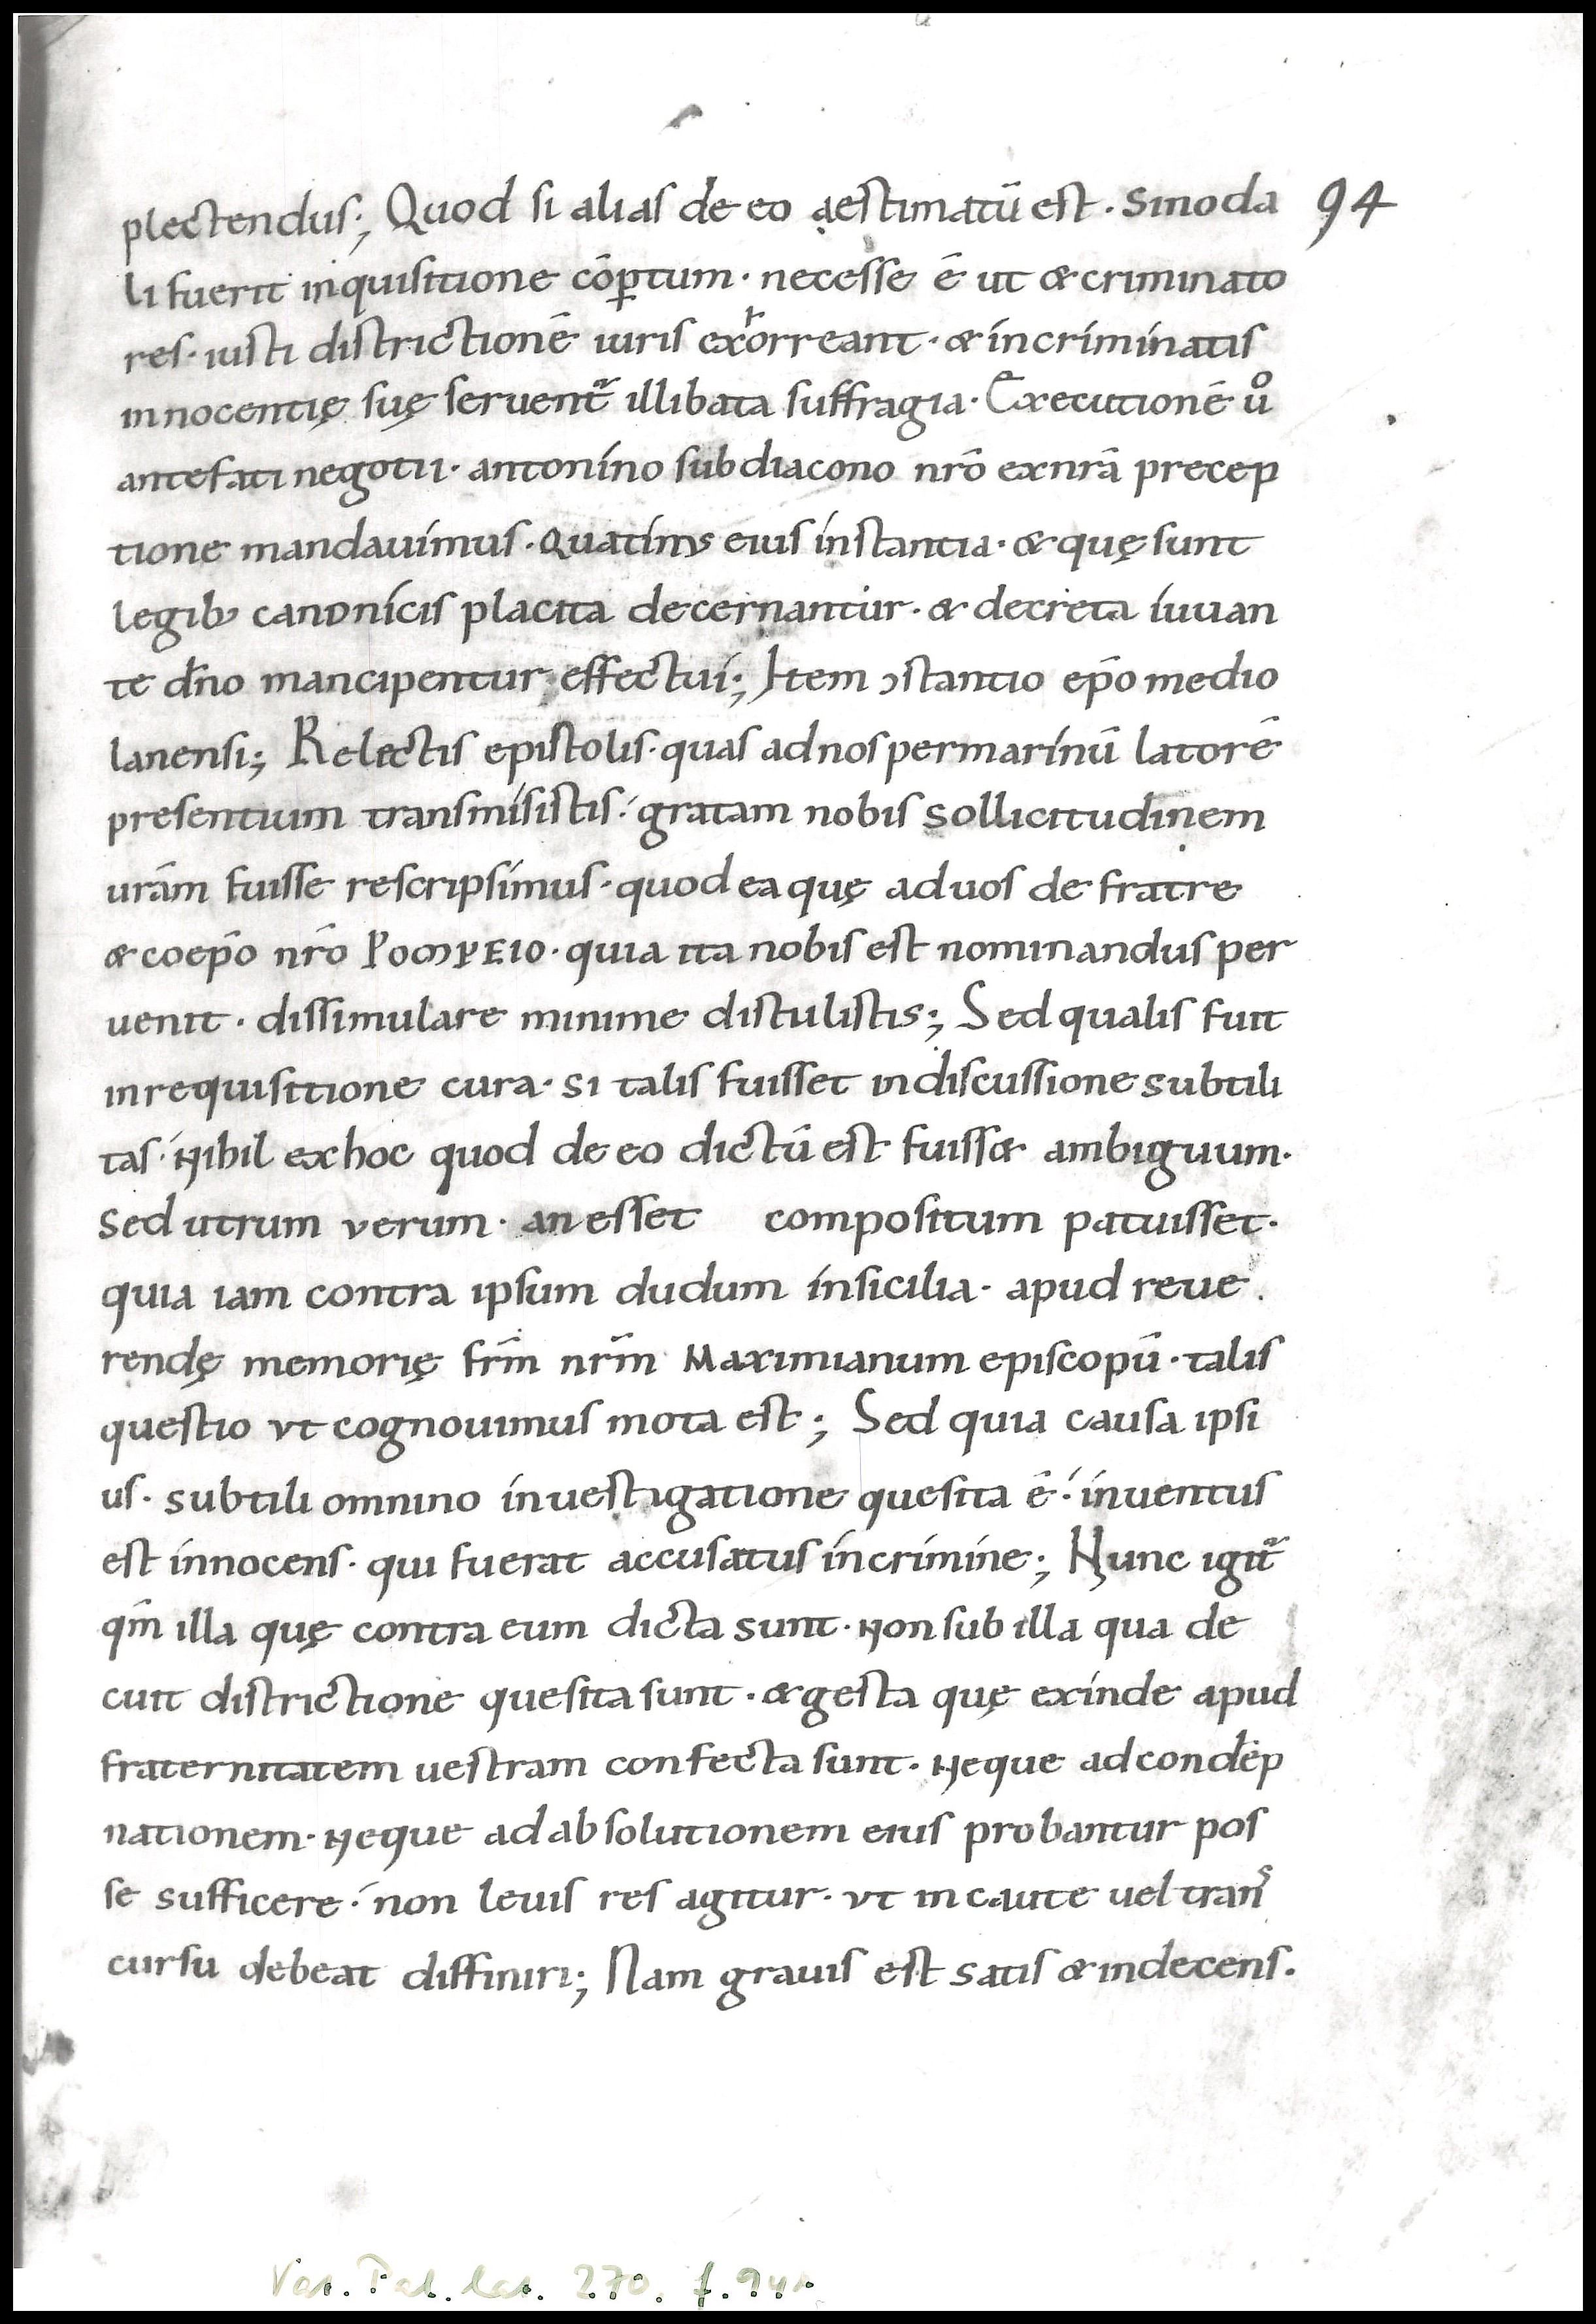 plectendus; Quod si alias de eo aestimatū est · sinoda 94
li fuerit inquisitione cōꝑtum · necesse ē ut & criminato
res · iusti districtionē iuris exhorreant · & incriminatis
innocentię suę seruent᷑ illibata suffragia · Executionē uͦ
antefati negotii · antonino subdiacono nr̄o exnr̄a precep
tione mandauimus · quatinus eius instantia · & quę sunt
legib; canonicis placita decernantur · & decreta iuuan
te dn̄o mancipentur effectui; Item ↄstantio ep̄o medio
lanensi; Relectis epistolis · quas adnospermarinū latorē
presentium transmisistis · gratam nobis sollicitudinem
urām fuisse rescripsimus · quod ea quę aduos de fratre
& coep̄o nr̄o POMPEIO · quia ita nobis est nominandus per
uenit · dissimulare minime distulistis; Sed qualis fuit
inrequisitione cura · si talis fuisset indiscussione subtili
tas · Nihil exhoc quod de eo dictū est fuiss& ambiguum ·
Sed utrum verum · an esset compositum patuisset ·
quia iam contra ipsum dudum insicilia · apud reue
rendę memorię frm̄ nrm̄ Maximianum episcopū · talis
questio vt cognouimus mota est; Sed quia causa ipsi
us · subtili omnino inuestigatione quesita ē · inuentus
est innocens · qui fuerat accusatus incrimine; Nunc igit᷑
qm̄ illa quę contra eum dicta sunt · Non sub illa qua de
cuit districtione quesita sunt · & gesta quę exinde apud
fraternitatem uestram confecta sunt · Neque ad condēp
nationem · Neque ad absolutionem eius probantur pos
se sufficere · non leuis res agitur · vt incaute uel trans
cursu debeat diffiniri; Nam grauis est satis & indecens ·
Vat. Pal. lat. 270. f. 94r